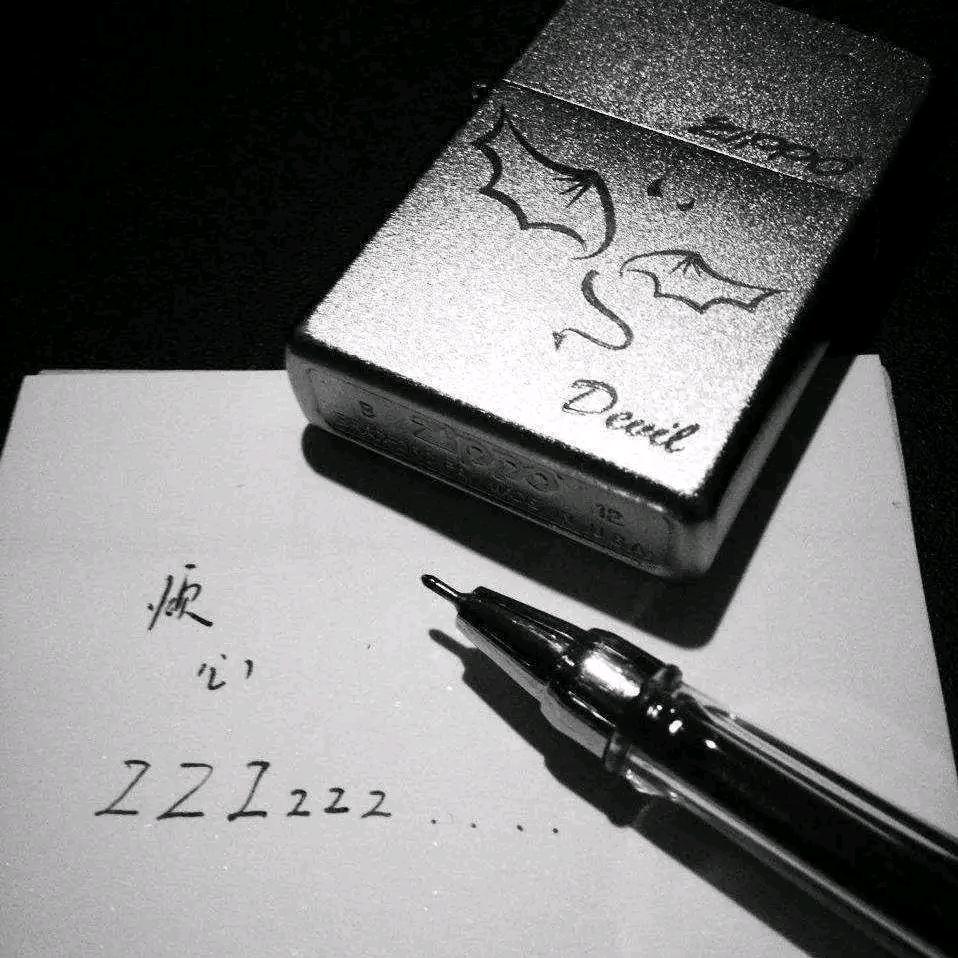 ZIPPO
Devil
B ZIPPO 12
烦
心
ZZZzzz....